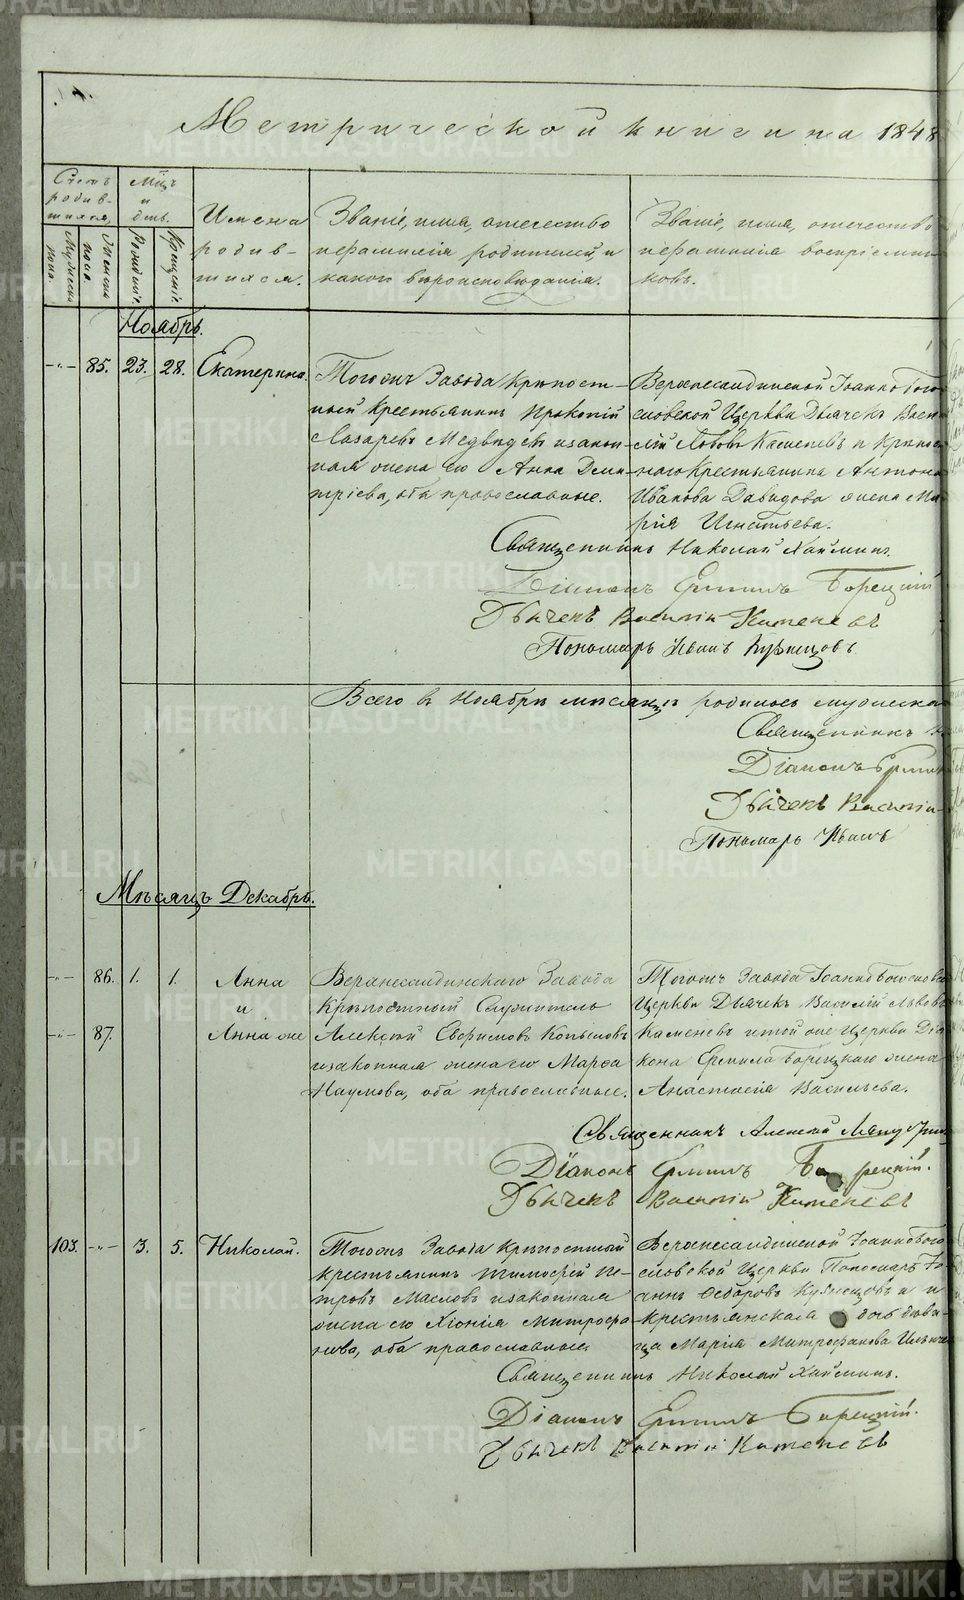 Метрической книги на 1848
Счетъ родив-шихся.
Мужеска пола.
Женска пола.
Мѣсяцъ и день.
Рожденіе.
Крещеніе.
Имена родив-шихся.
Званіе, имя, отечество
и фамилія родителей, и
какого вѣроисповѣданія.
Званіе, имя, отечество
и фамилія воспріемни-
ковъ.
Ноябрь.
85. 23. 28. Екатерина.
Тогожъ Завода Крѣпост-
ный Крестьянинъ Прокопій
Лазаревъ Медведевъ и закон-
ная жена его Анна Дими-
тріева, оба православные.
Верхнесалдинской Іоанно Бого-
словской Церкви Дьячекъ Васи-
лій Львовъ Каменевъ и Крѣпос-
наго Крестьянина Антона
Иванова Давыдова жена Ма-
рія Игнатьева.
Священникъ Николай Хлынинъ.
Діаконъ Ермилъ Борецкій
Дьячекъ Василій Каменевъ
Пономарь Иванъ Кузнецовъ.
Всего в Ноябрѣ мѣсяцѣ родилось мужеска
Священникъ Н
Діаконъ Ермил
Дьячекъ Василій
Пономарь Иванъ
Мѣсяцъ Декабрь.
86. 1. 1. Анна
и
87. Анна же
Верхнесалдинскаго Завода
Крѣпостный Служитель
Алексѣй Копыловъ
и законная жена его Марѳа
Наумова, оба православные.
Тогожъ Завода Іоанно Богословс
Церкви Дьячекъ Василій Львовъ
Каменевъ и той же Церкви Діа-
кона Ермила Борецкаго жена
Анастасія Васильева.
Священникъ Алексей
Діаконъ Ермилъ Борецкій.
Дьячекъ Василій Каменевъ
103. 3. 5. Николай.
Тогожъ Завода Крѣпостный
крестьянинъ Тимофей Пе-
тровъ Масловъ и законная
жена его Хіонія Митрофа-
нова, оба православные
Верхнесалдинской Іоанно Бого-
словской Церкви Пономарь Іо-
аннъ Ѳедоровъ Кузнецовъ и
крестьянская дочь дѣви-
ца Марія Митрофанова
Священникъ Николай Хлынинъ.
Діаконъ Ермилъ Борецкій.
Дьячекъ Василій Каменевъ
METRIKI.GASO-URAL.RU